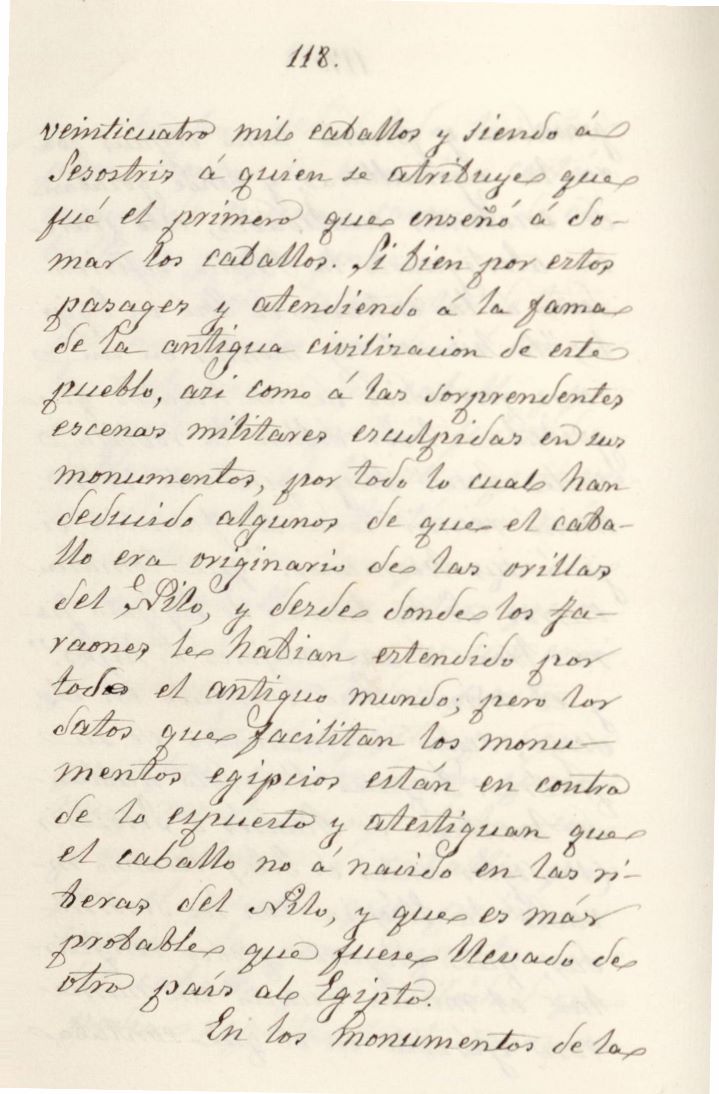 118.
veinticuatro mil caballos y siendo á
Sesostris á quien se atribuye que
fué el primero que enseñó á do-
mar los caballos. Si bien por estos
pasages y atendiendo á la fama
de la antigua civilizacion de este
pueblo, asi como á las sorprendentes
escenas militares esculpidas en sus
monumentos, por todo lo cual han
deducido algunos de que el caba-
llo era originario de las orillas
del Nilo, y desde donde los Fa-
raones le habian estendido por
todo el antiguo mundo; pero los
datos que facilitan los monu-
mentos egipcios están en contra
de lo espuesto y atestiguan que
el caballo no á nacido en las ri-
beras del Nilo, y que es más
probable que fuese llevado de
otro país al Egipto.
En los monumentos de la